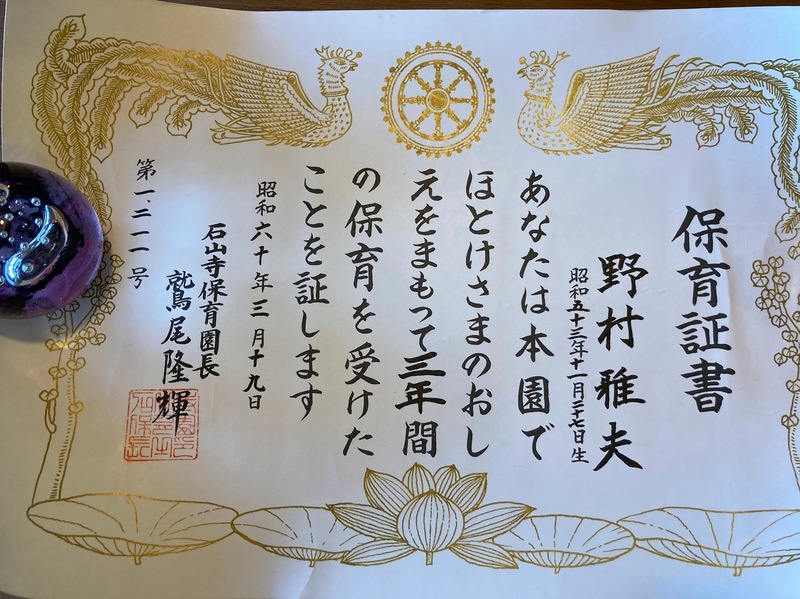 保育証書
野村雅夫
昭和五十三年十一月二十七日生
あなたは本園で
ほとけさまのおし
えをまもって三年間
の保育を受けた
ことを証します
昭和六十年三月十九日
石山寺保育園長
鷲尾隆輝
第一、二一一号